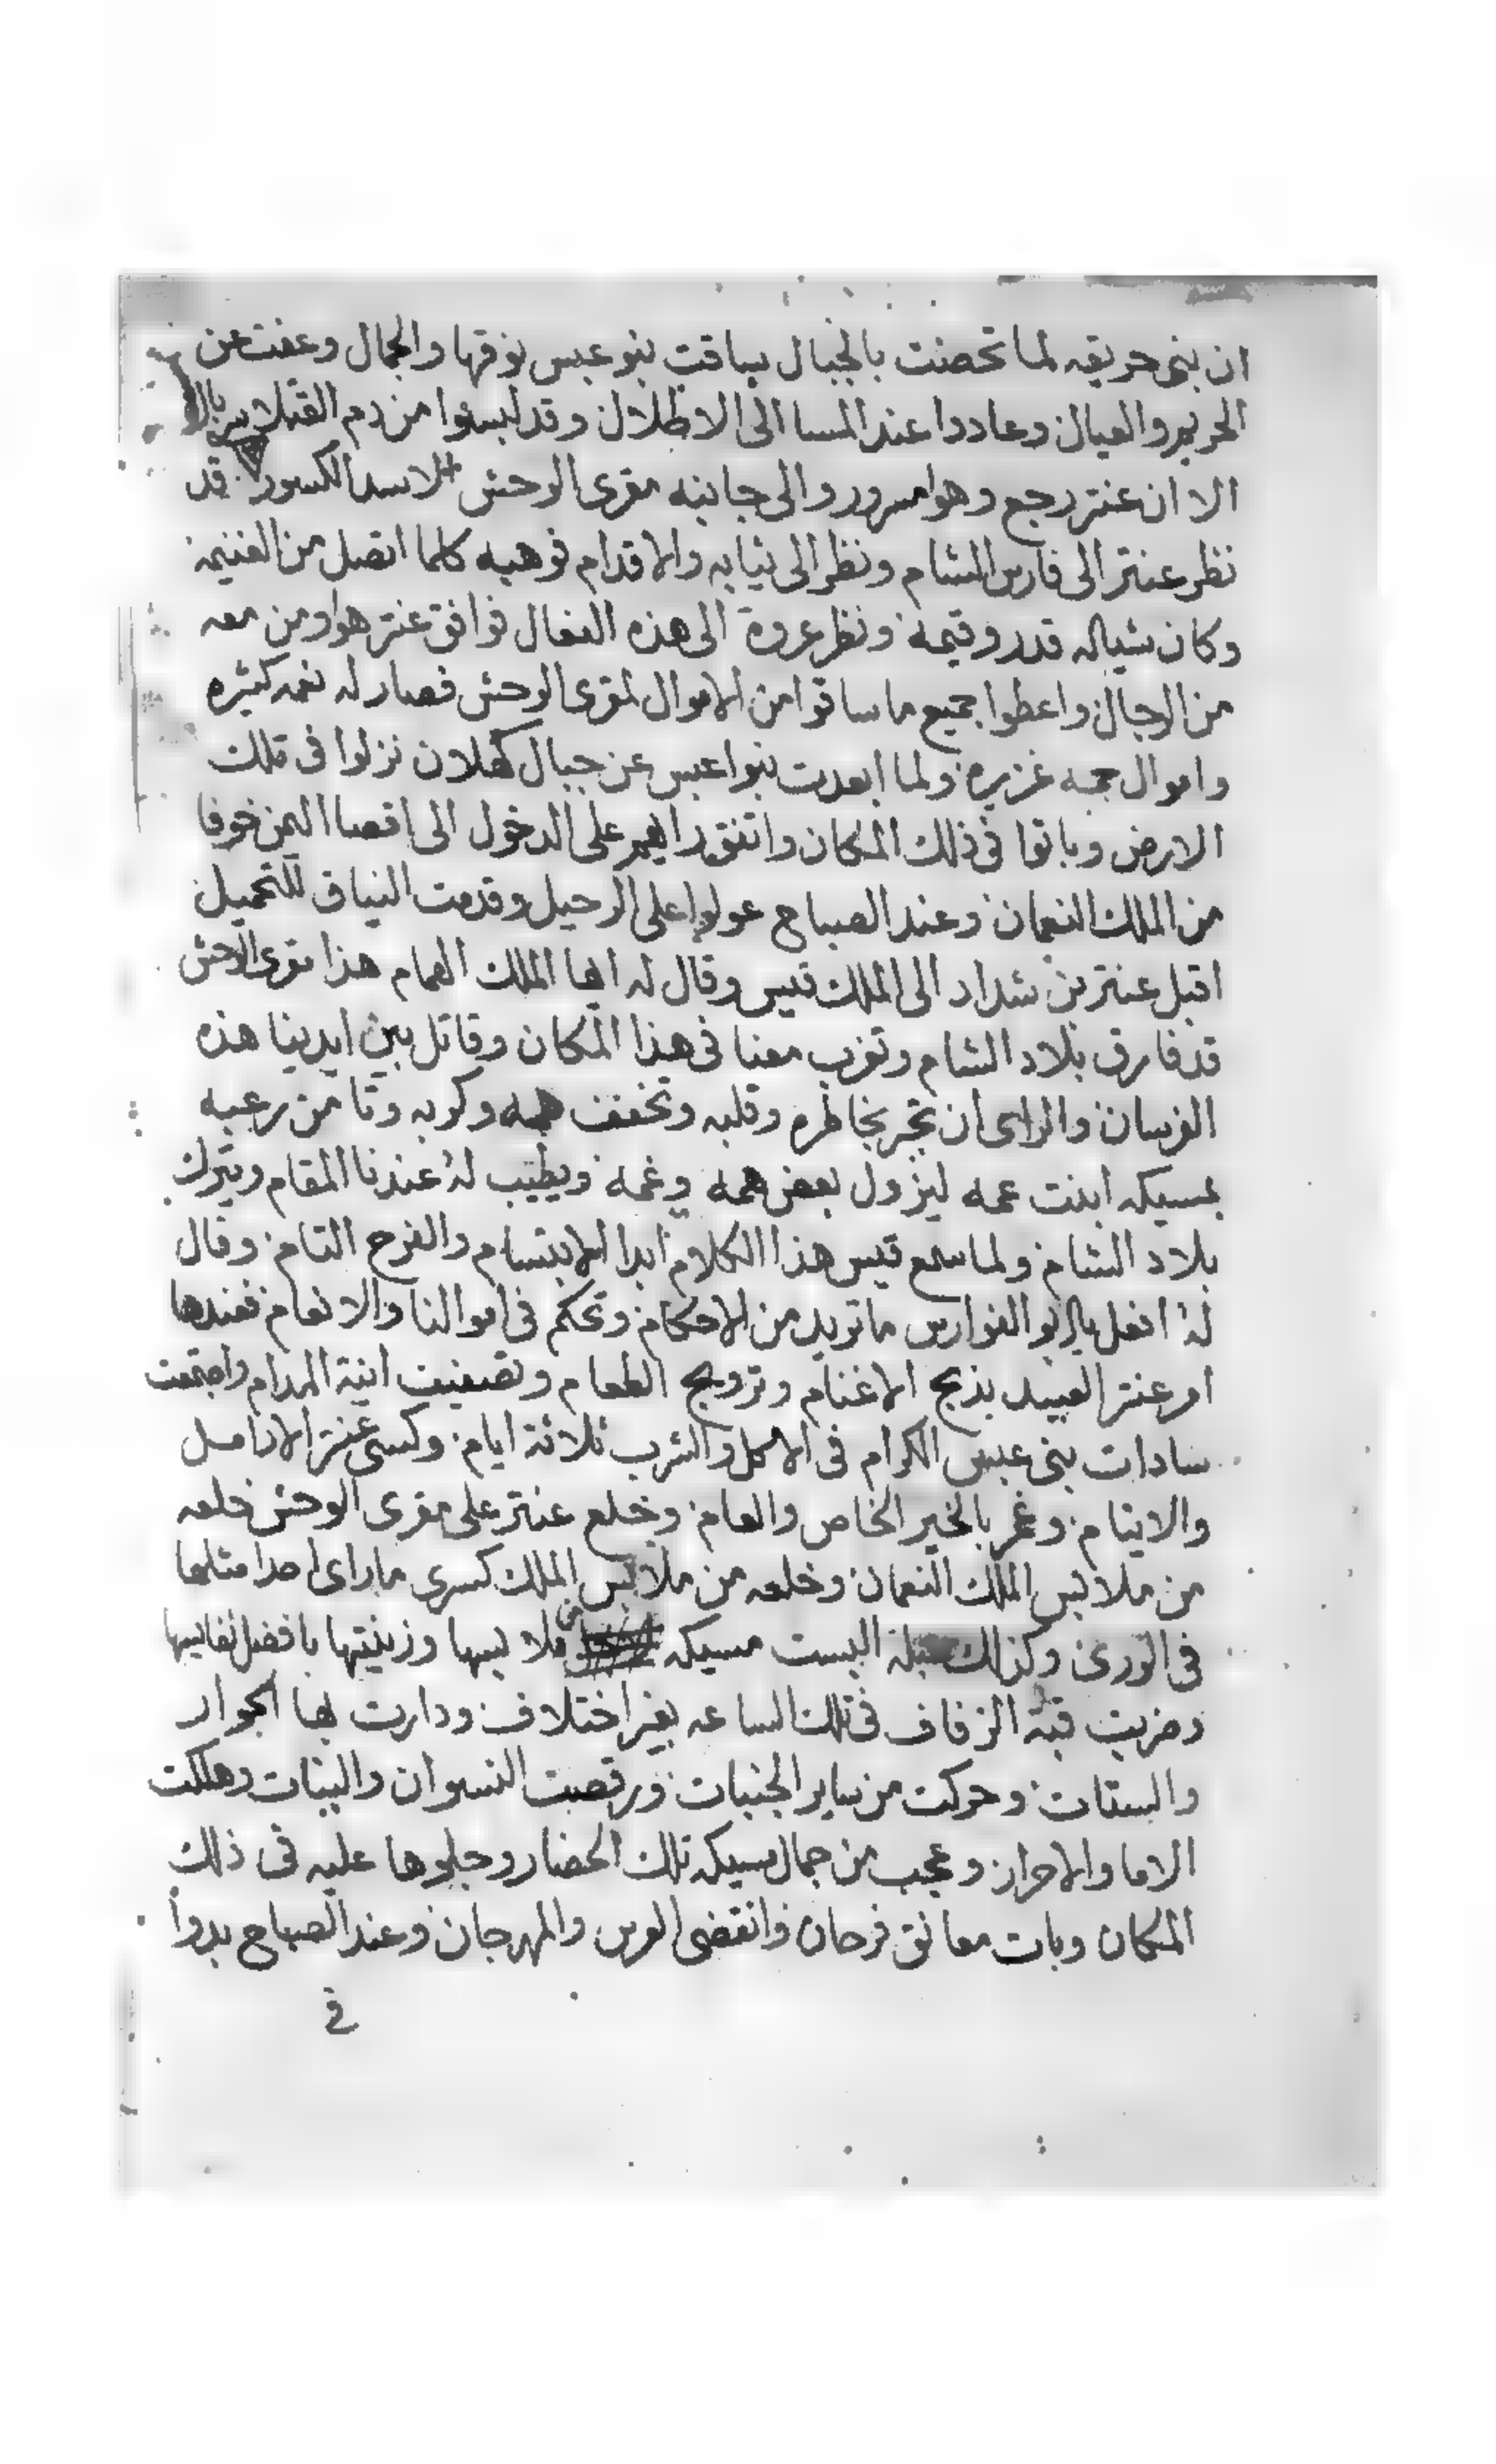 ان بنى حريقه لما تحصنت بالجبال ساقت بنو عبس نوقها والجمال وعفت عن
الحريم والعيال وعادوا عند المسا الى الاطلال وقد لبسوا من دم القتلا سربال
الا ان عنتر رجع وهوا مسرور والى جانبه مقرى الوحش الاسد الكسور قد
نظر عنتر الى فارس الشام ونظر الى ثيابه والاقدام فوهبه كلما اتصل من الغنيمة
وكان شياله قدر وقيمه ونظر عروة الى هذه الفعال فوافق عنتر هوا ومن معه
من الرجال واعطوا جميع ما ساقوا من الاموال لمقرى الوحش فصار له نعمه كثيره
واموال جمه غزيره ولما ابعدت بنوا عبس عن جبال كهلان نزلوا فى تلك
الارض وباتوا فى ذلك المكان واتفق رايهم على الدخول الى اقصا اليمن خوفا
من الملك النعمان وعند الصباح عولوا على الرحيل وقدمت النياق للتحميل
اقبل عنتر بن شداد الى الملك قيس وقال له ايها الملك الهمام هذا مقرى الوحش
قد فارق بلاد الشام وتغرب معنا فى هذا المكان وقاتل بين ايدينا هذه
الفرسان والراى ان تجبر بخاطره وقلبه وتخفف همه وكربه وتامن رعبه
بمسيكه ابنت عمه ليزول بعض همه وغمه ويطيب له عندنا المقام ويترك
بلاد الشام ولما سمع قيس هذا الكلام ابدا الابتسام والفرح التام وقال
له افعل يابو الفوارس ما تريد من الاحكام وتحكم فى اموالنا والانعام فعندها
امر عنتر العبيد بذبح الاغنام وترويج الطعام وتصفيت انية المدام واجتمعت
سادات بنى عبس الكرام فى الاكل والشرب ثلاثة ايام وكسى عنتر الارامل
والايتام وغمر بالخير الخاص والعام وخلع عنتر على مقرى الوحش خلعه
من ملابس الملك النعمان وخلعه من ملابس الملك كسرى ما راى احدا مثلها
فى الورى وكذلك عبلة البست مسيكه من ملابسها وزينتها بافضل نفايسها
وضربت قبة الزفاف فى تلك الساعه بغير اختلاف ودارت بها الجوار
والستات وحركت من ساير الجنبات ورقصت النسوان والبنات وهللت
الاما والاحرار وعجب من جمال مسيكه تلك الحضار وجلوها عليه فى ذلك
المكان وبات معانق فرحان وانقضى العرس والمهرجان وعند الصباح بدوا
فى